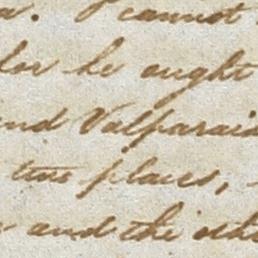 a. I cannot
he ought
and Valparais
two places,
and the oth